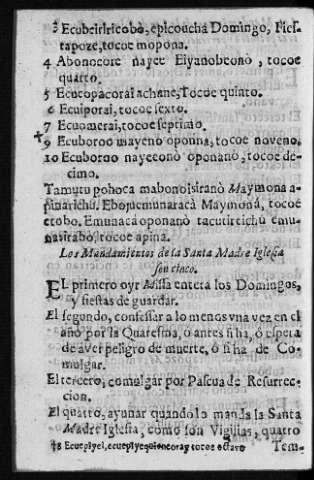 3 Ecubeiriricobò, epicoucha Domingo, Fiestapoze, tocoe mopona.
4 Abonocore nayee Eiyanobeonò, tocoe
quarto.
5 Ecucopacoraî achane, Tocoe quinto.
6 Ecuiporai, tocoe sexto.
7 Ecuomerai, tocoe septimo.
✝9 Ecuboroo mayeno oponna, tocoe noveno.
10 Ecuboroo nayeeono oponanò, tocoe de-
cimo.
Tamutu pohoca mabonoìsiranò Maymona a-
Maymonà, tocoe
ctobo. Emunacà oponanò tacutirichù emu-
nasirabò, tocoe apina.
Los Mandamientos de la Santa Madre Iglesia
son cinco.
EL primero oyr Missa entera los Domingos,
y fiestas de guardar.
El segundo, confessar a lo menos vna vez en el
año por la Quaresma, ò antes si ha, ò espera
de aver peligro de muerte, ò si ha de Co-
mulgar.
El tercero, comulgar por Pascua de Resurrec-
cion.
El quatro, ayunar quando lo manda la Santa
Madre Iglesia, como son Vigilias, quatro
✝8 Ecuepiyei, ecuepiyequioncoray tocoe octavo Tem-